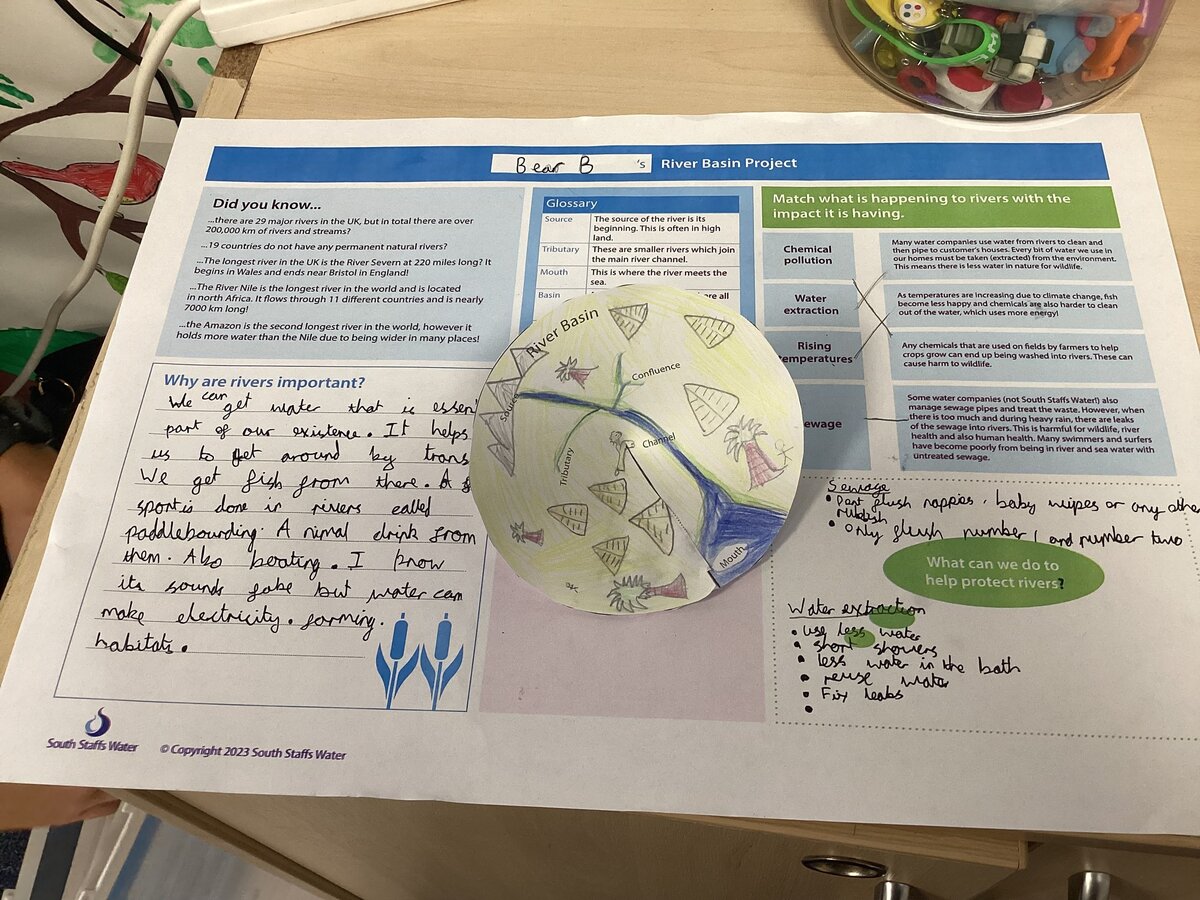 Bear B 's River Basin Project
Did you know...
...there are 29 major rivers in the UK, but in total there are over
200,000 km of rivers and streams?
...19 countries do not have any permanent natural rivers?
...The longest river in the UK is the River Severn at 220 miles long? It
begins in Wales and ends near Bristol in England!
...The River Nile is the longest river in the world and is located
in north Africa. It flows through 11 different countries and is nearly
7000 km long!
...the Amazon is the second longest river in the world, however it
holds more water than the Nile due to being wider in many places!
Why are rivers important?
We can get water that is essen
part of our existence. It helps
us to get around by trans
We get fish from there. A
sport is done in rivers called
paddlebourding. A nimal drink from
them. Also boating. I know
its sounds fake but water can
make electricity. farming.
habitats.
South Staffs Water
© Copyright 2023 South Staffs Water
Glossary
Source
The source of the river is its
beginning. This is often in high
land.
Tributary
These are smaller rivers which join
the main river channel.
Mouth
This is where the river meets the
sea.
Basin
are all
River Basin
Source
Confluence
Channel
Tributary
Mouth
Match what is happening to rivers with the
impact it is having.
Chemical
pollution
Water
extraction
Rising
temperatures
ewage
Many water companies use water from rivers to clean and
then pipe to customer's houses. Every bit of water we use in
our homes must be taken (extracted) from the environment.
This means there is less water in nature for wildlife.
As temperatures are increasing due to climate change, fish
become less happy and chemicals are also harder to clean
out of the water, which uses more energy!
Any chemicals that are used on fields by farmers to help
crops grow can end up being washed into rivers. These can
cause harm to wildlife.
Some water companies (not South Staffs Water!) also
manage sewage pipes and treat the waste. However, when
there is too much and during heavy rain, there are leaks
of the sewage into rivers. This is harmful for wildlife, river
health and also human health. Many swimmers and surfers
have become poorly from being in river and sea water with
untreated sewage.
Sewage
• flush nappies, baby wipes or any other
rubbish
• only flush number 1 and number two
What can we do to
help protect rivers?
Water extraction
• use less water
• short showers
• less water in the bath
• reuse water
• Fix leaks
•